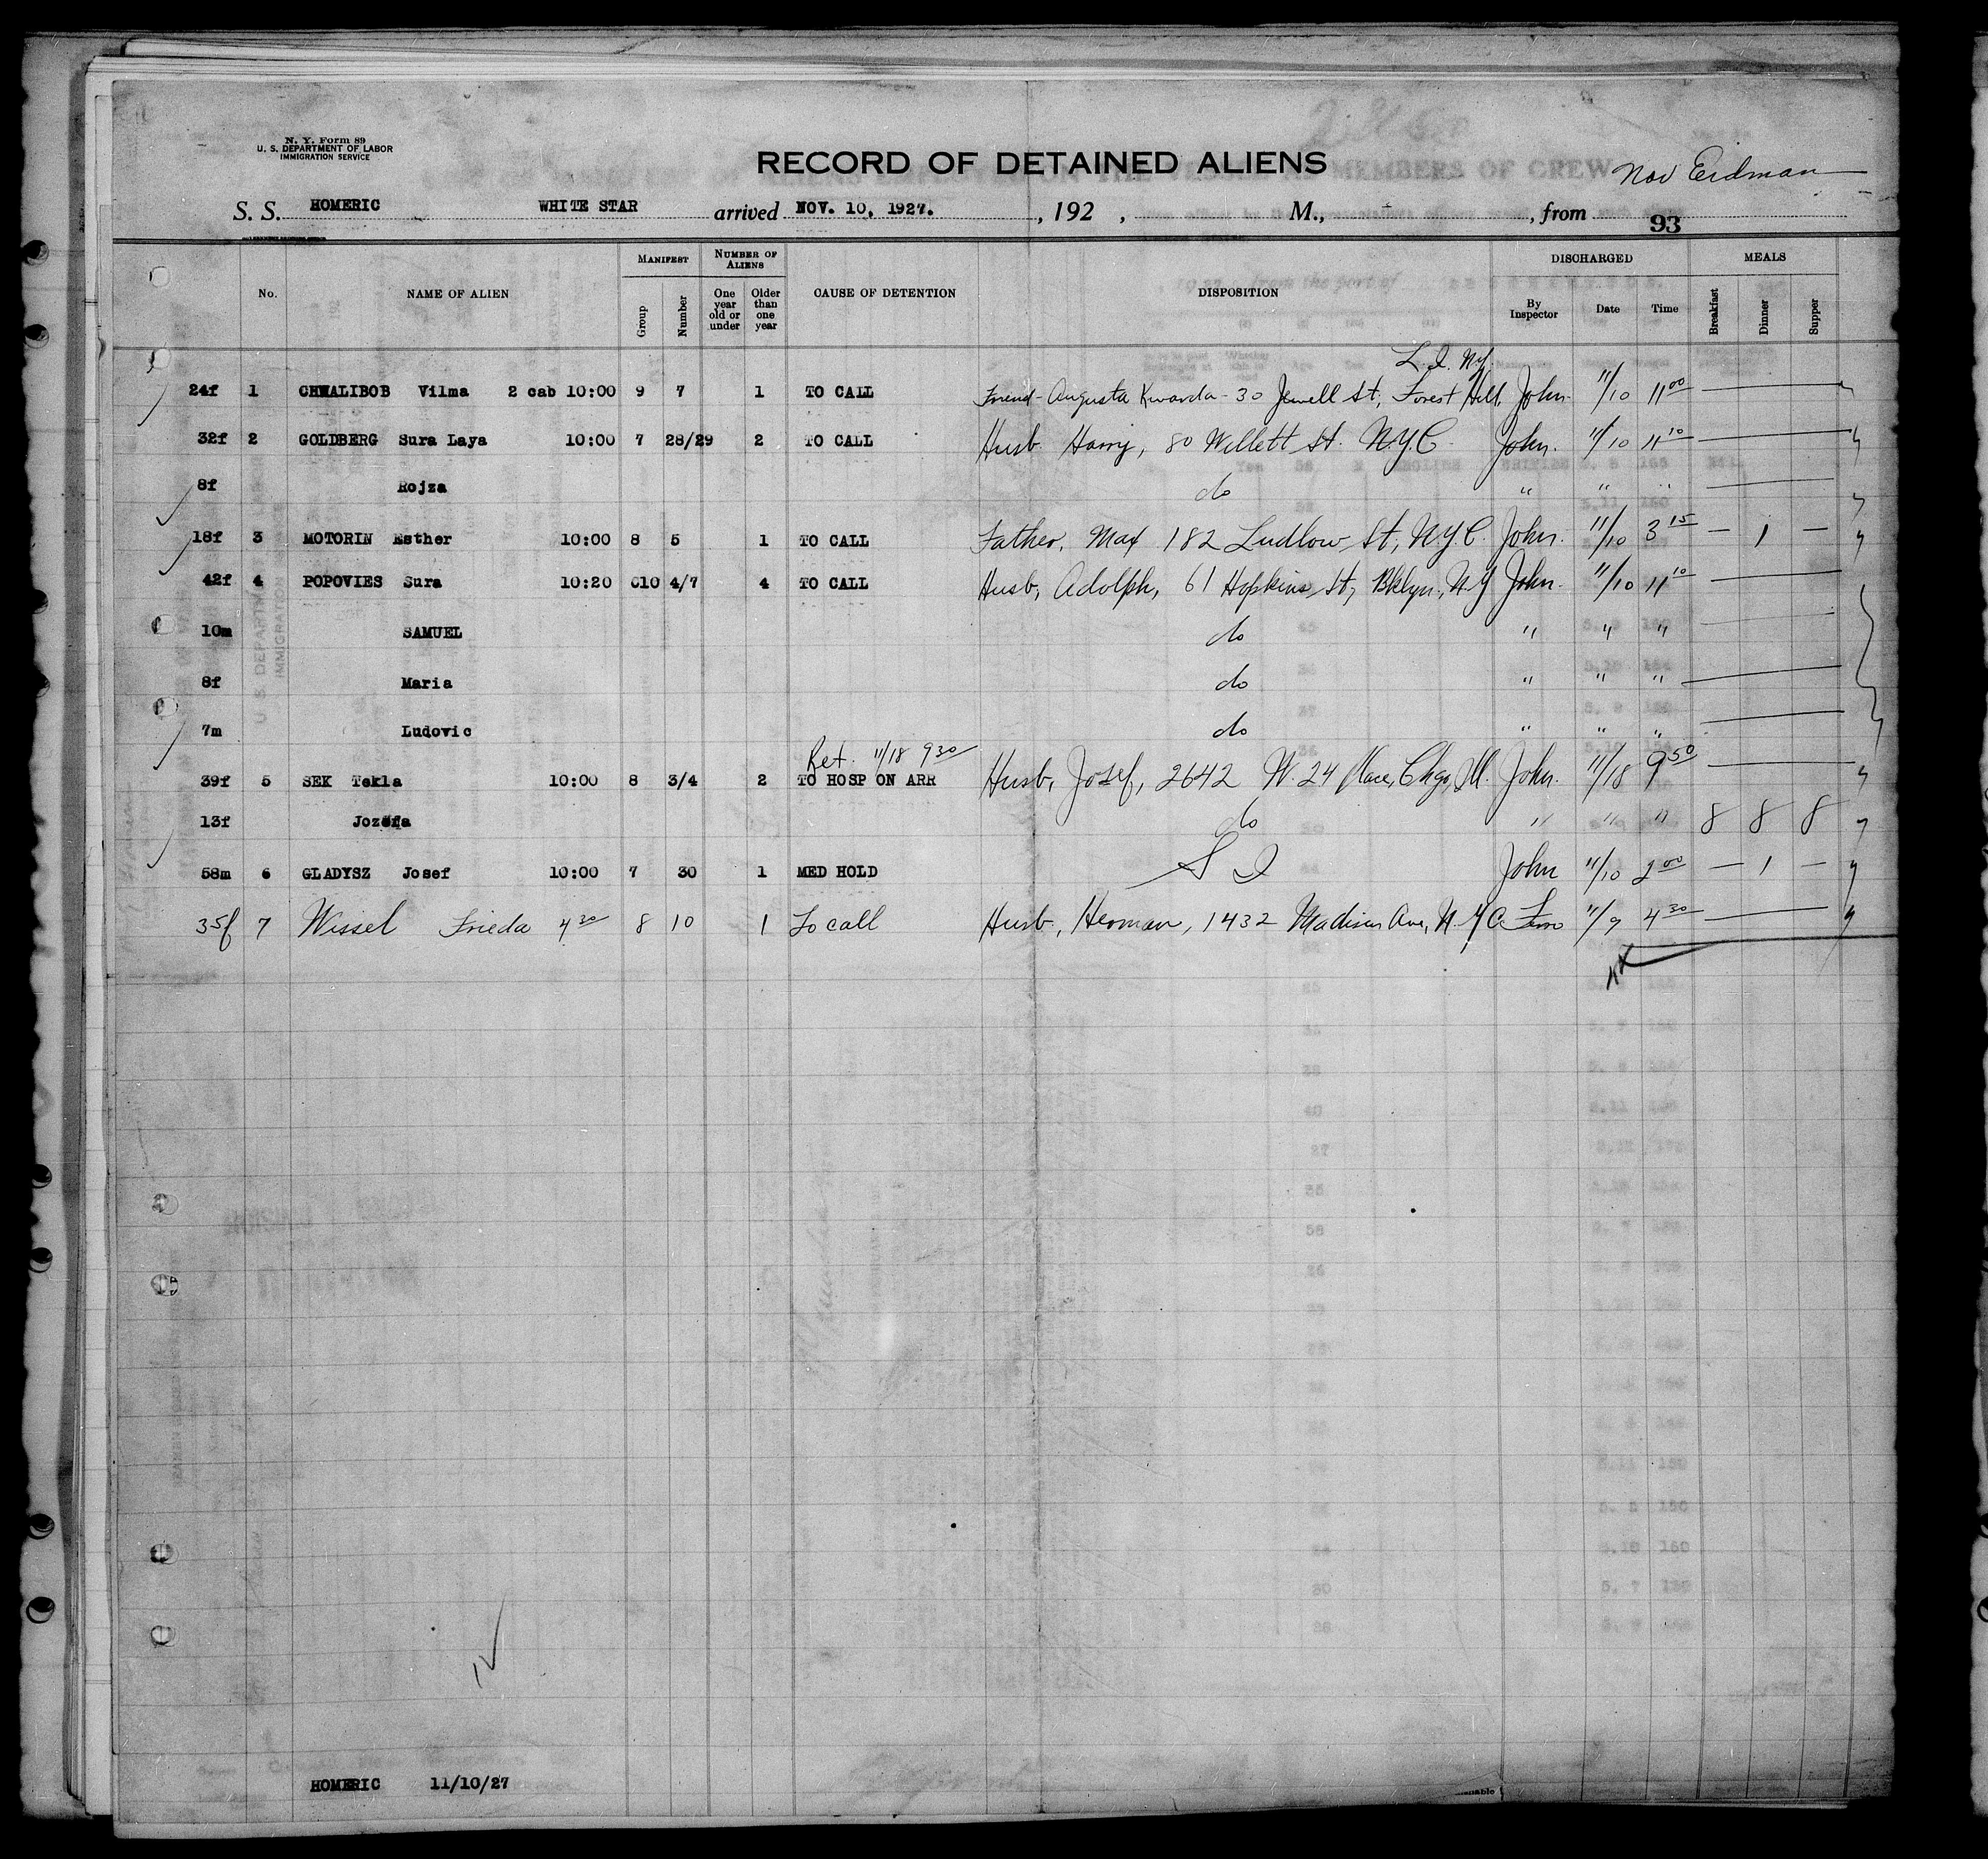 N. Y. Form 89
U. S. DEPARTMENT OF LABOR
IMMIGRATION SERVICE
RECORD OF DETAINED ALIENS
Nov Eidman
S. S. HOMERIC WHITE STAR arrived NOV. 10, 1927. , 192 , M., , from
93
No. NAME OF ALIEN MANIFEST Group Number NUMBER OF ALIENS One year old or under Older than one year CAUSE OF DETENTION DISPOSITION DISCHARGED By Inspector Date Time MEALS Breakfast Dinner Supper
L. I. N.Y.
24f 1 CHWALIBOB Vilma 2 cab 10:00 9 7 1 TO CALL Friend - Augusta Kwarda - 30 Jewell St, Forest Hill, John. 11/10 11 00
32f 2 GOLDBERG Sura Laya 10:00 7 28/29 2 TO CALL Husb. Harry, 80 Willett St. N.Y.C John. 11/10 11 10
8f Rojza do " " "
18f 3 MOTORIN Esther 10:00 8 5 1 TO CALL Father, Max 182 Ludlow St, N.Y.C. John. 11/10 3 15 — 1 —
42f 4 POPOVIES Sura 10:20 C10 4/7 4 TO CALL Husb, Adolph, 61 Hopkins St, Bklyn., N.Y John. 11/10 11 10
10m SAMUEL do " " "
8f Maria do " " "
7m Ludovic do " " "
Ret. 11/18 9 30
39f 5 SEK Tekla 10:00 8 3/4 2 TO HOSP ON ARR Husb, Josef, 2642 W. 24 Place, Chgo, Ill. John. 11/18 9 50
13f Jozefa do " " " 8 8 8
58m 6 GLADYSZ Josef 10:00 7 30 1 MED HOLD S I John 11/10 2 00 — 1 —
35f 7 Wissel Frieda 4 30 8 10 1 To call Husb., Herman, 1432 Madison Ave, N.Y.C. 11/9 4 30
12
HOMERIC 11/10/27